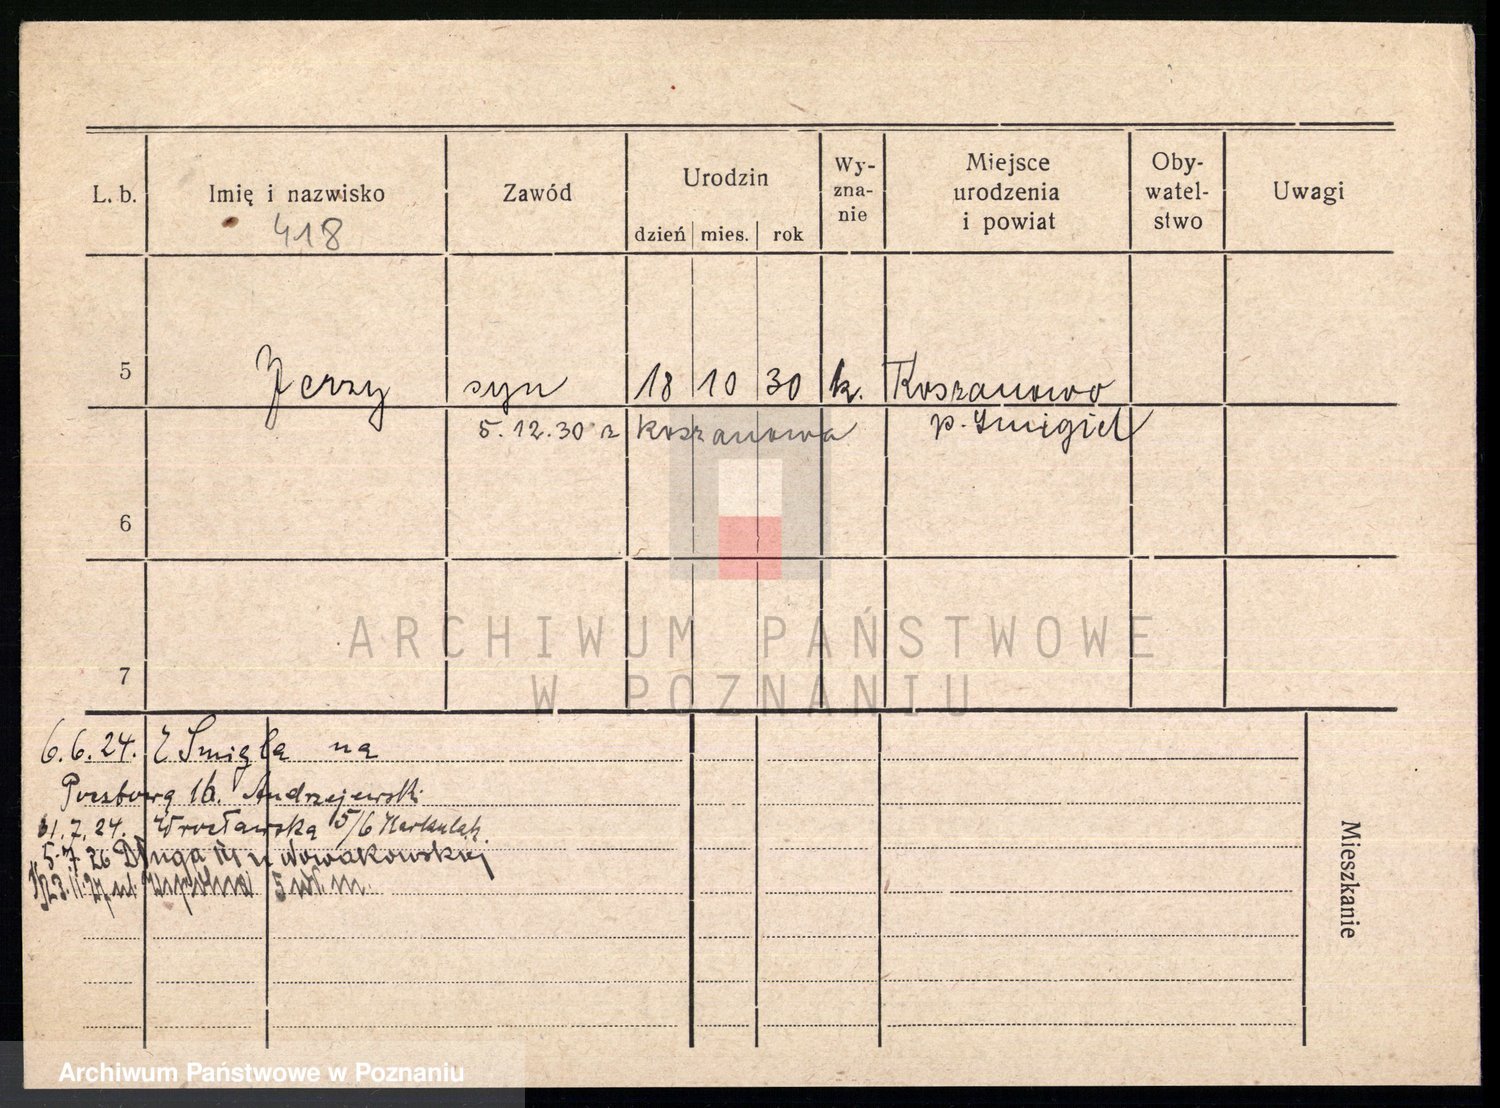 L. b. Imię i nazwisko Zawód Urodzin dzień mies. rok Wy-zna-nie Miejsce urodzenia i powiat Oby-watel-stwo Uwagi
418
5 Jerzy syn 18 10 30 k. Koszanowo
5.12.30 z Koszanowa p. Śmigiel
6
ARCHIWUM PAŃSTWOWE
W POZNANIU
7
6.6.24. Z Śmigla na
16. Andrzejewski
7.24. Wrocławska 5/6
5.7.26 Długa u Nowakowskiej
23.11.27 5 m.
Mieszkanie
Archiwum Państwowe w Poznaniu